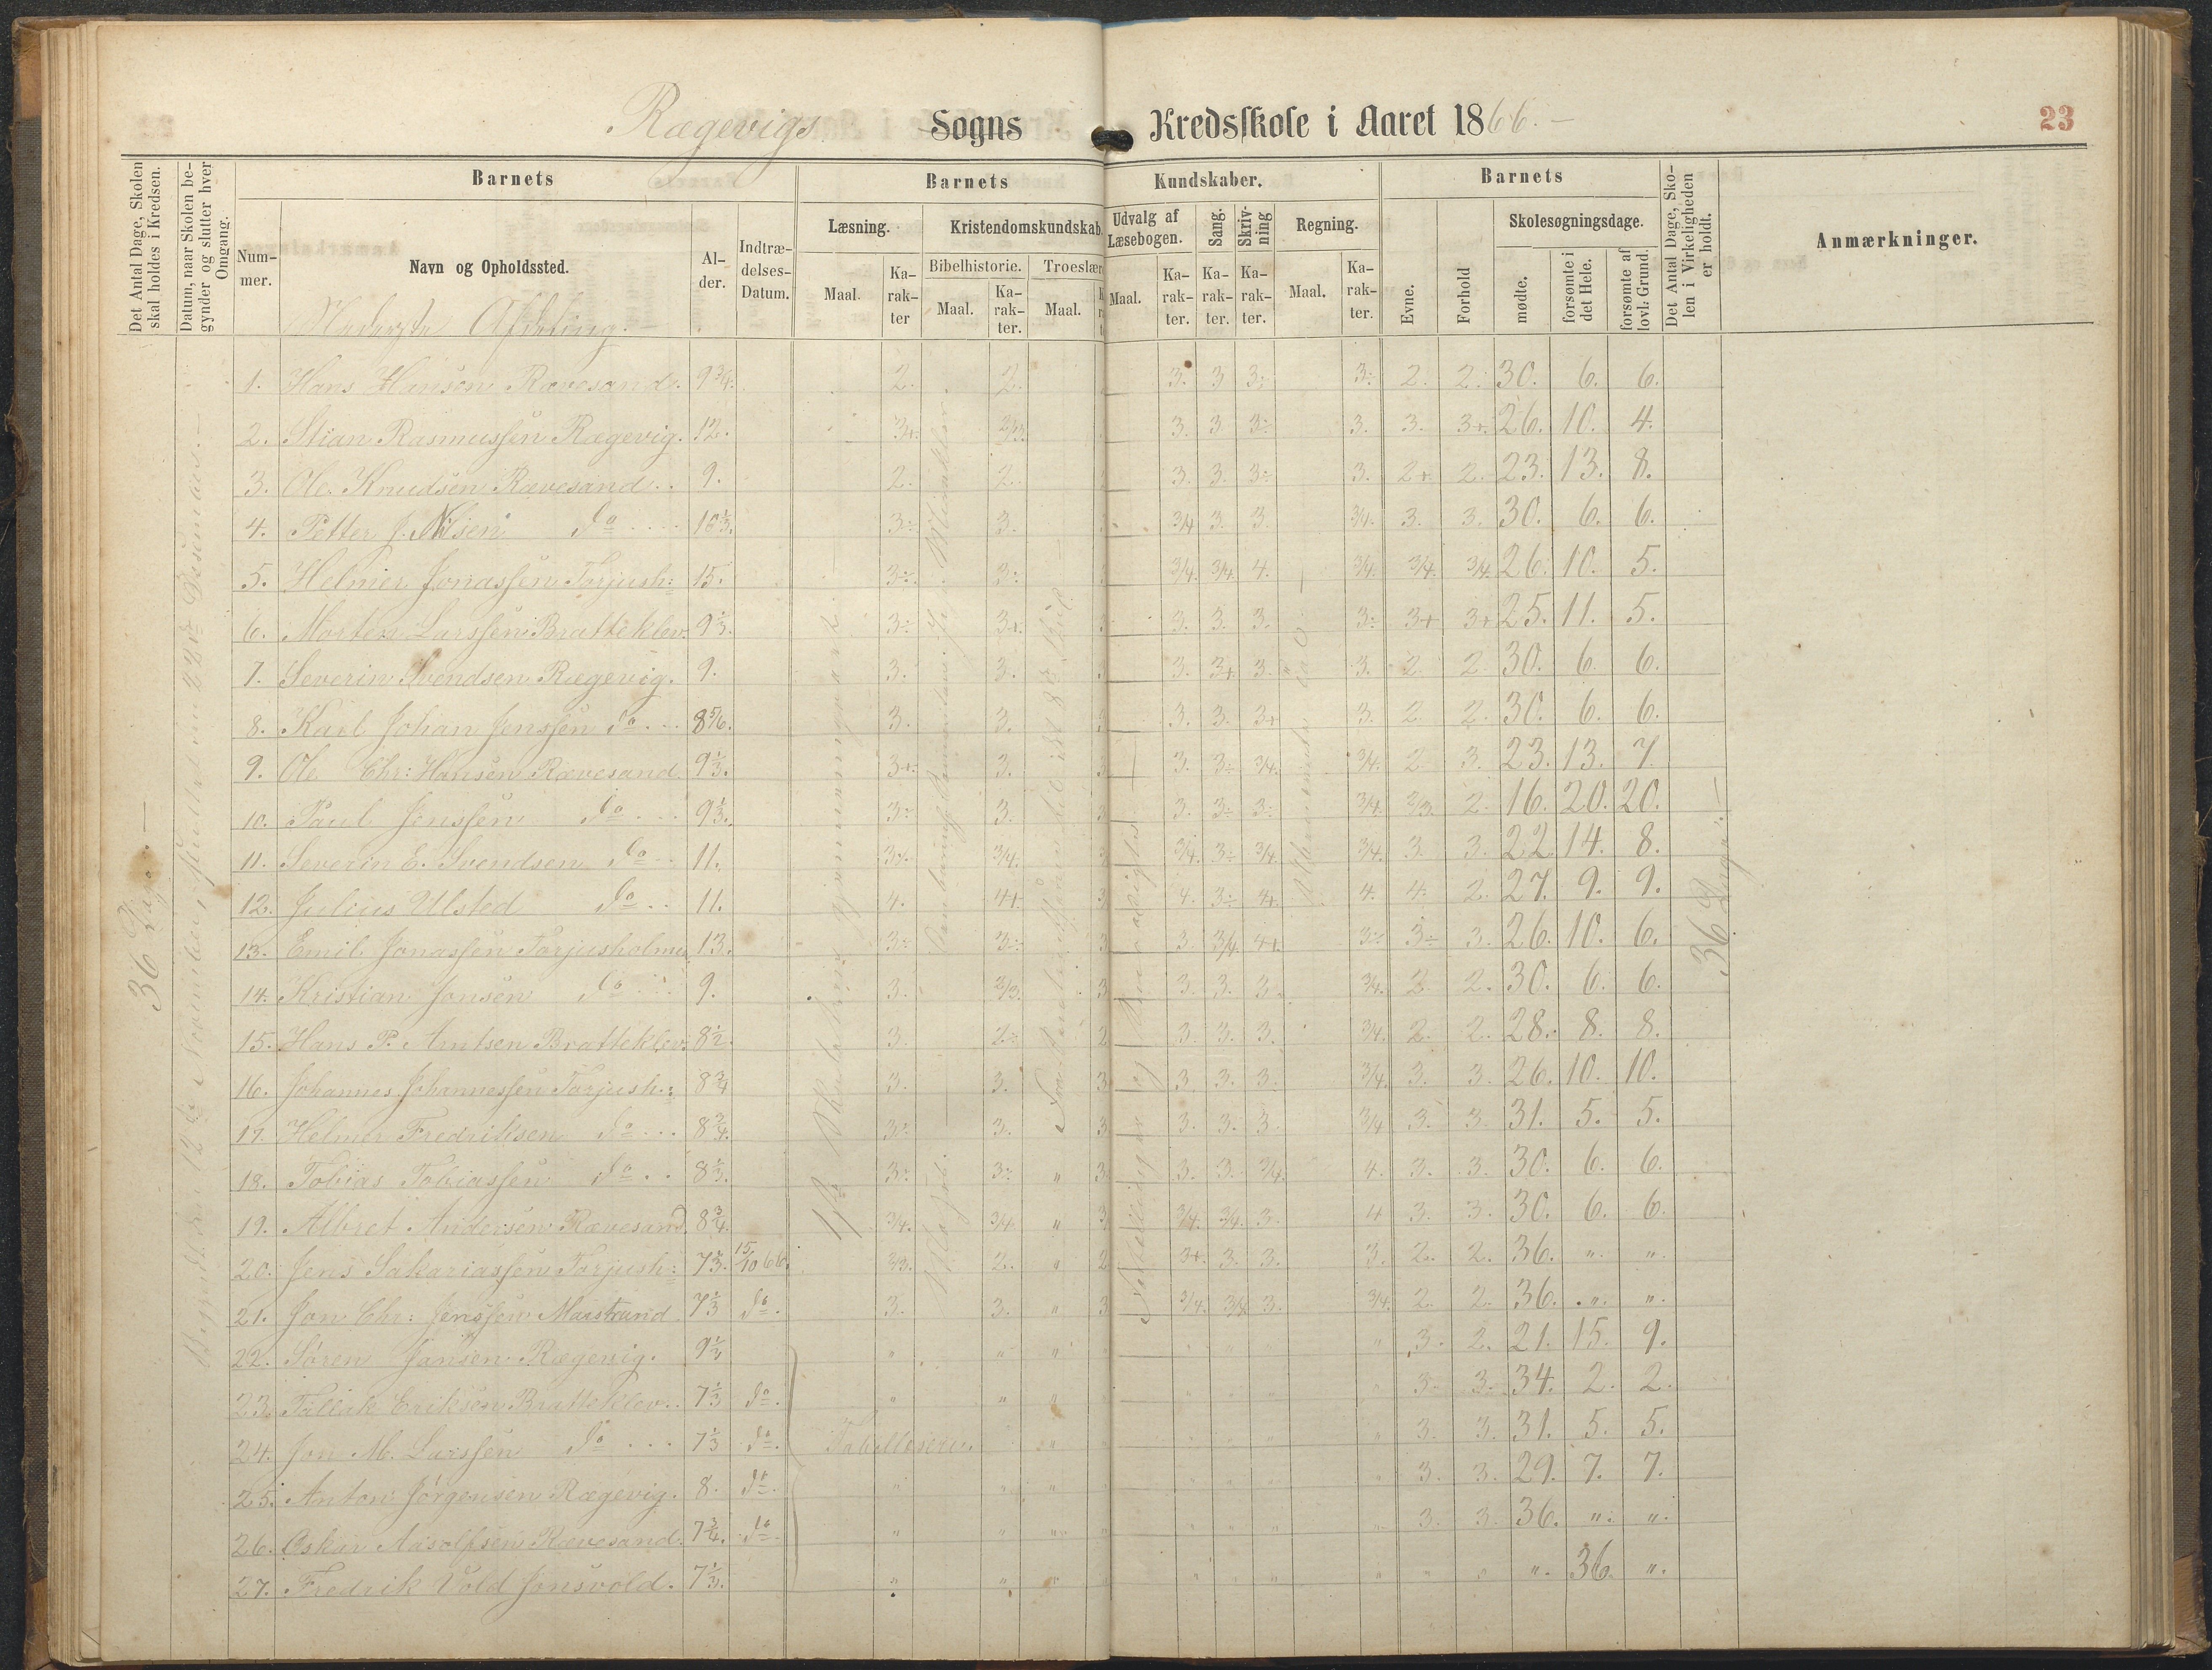 Rægevigs Sogns Kredsskole i Aaret 1866.—
23
Det Antal Dage, Skolen skal holdes i Kredsen.
Datum, naar Skolen begynder og slutter hver Omgang.
Barnets
Barnets Kundskaber.
Barnets
Det Antal Dage, Skolen i Virkeligheden er holdt.
Anmærkninger.
Nummer.
Navn og Opholdssted.
Alder.
Indtrædelses-Datum.
Læsning.
Kristendomskundskab.
Udvalg af Læsebogen.
Sang.
Skrivning
Regning.
Evne.
Forhold
Skolesøgningsdage.
Bibelhistorie.
Troeslær
Maal.
Karakter
Maal.
Karakter.
Maal.
Maal.
Karakter.
Karakter.
Karakter.
Maal.
Karakter.
mødte.
forsømte i det Hele.
forsømte af lovl. Grund.
Nederste Afdeling.
36 Dage.—
36 Dage.
1. Hans Hansen Rævesand. 9 3/4. 2. 2. 3. 3 3÷ 3÷ 2. 2÷ 30. 6. 6.
2. Stian Rasmussen Rægevig. 12. 3+. 2/3. 3. 3. 3÷ 3. 3. 3+. 26. 10. 4.
3. Ole Knudsen Rævesand.. 9. 2. 2. 3. 3. 3÷ 3. 2+. 2. 23. 13. 8.
4. Petter J. Nilsen do .... 10 1/3. 3÷ 3. 3/4 3. 3. 3/4. 3. 3. 30. 6. 6.
5. Helmer Jonassen Torjush: 15. 3÷. 3÷ 3/4. 3/4. 4. 3/4. 3/4. 3/4. 26. 10. 5.
6. Morten Larssen Bratteklev. 9 1/3. 3÷ 3+. 3. 3. 3. 3÷ 3+ 3+ 25. 11. 5.
7. Severin Svendsen Rægevig. 9. 3. 3. 3. 3+. 3. 3. 2. 2. 30. 6. 6.
8. Karl Johan Jenssen do... 8 5/6. 3. 3. 3. 3. 3+ 3. 2. 2. 30. 6. 6.
9. Ole Chr: Hansen Rævesand 9 1/3. 3+. 3. 3. 3÷ 3/4. 3/4. 2. 3. 23. 13. 7.
10. Paul Jenssen do ... 9 1/3. 3÷ 3. 3. 3÷ 3÷ 3/4. 2/3. 2. 16. 20. 20.
11. Severin E. Svendsen do .. 11. 3÷. 3/4. 3/4. 3÷ 3/4. 3/4. 3. 3. 22 14. 8.
12. Julius Ulsted do .. 11. 4. 4+. 4. 3÷ 4+. 4. 4. 2. 27. 9. 9.
13. Emil Jonassen Torjusholmen 13. 3÷ 3÷ 3. 3/4. 4+. 3÷ 3÷ 3. 26. 10. 6.
14. Kristian Jonsen do ... 9. 3. 2/3. 3. 3. 3. 3/4. 2. 2. 30. 6. 6.
15. Hans P. Arntsen Bratteklev. 8 1/2. 3. 2÷ 3. 3. 3. 3/4. 2. 2. 28. 8. 8.
16. Johannes Johannessen Torjush.: 8 3/4 3. 3. 3. 3. 3. 3/4. 3. 3. 26. 10. 10.
17. Helmer Fredriksen do ... 8 3/4. 3÷ 3. 3. 3. 3. 3/4 3. 3. 31. 5. 5.
18. Tobias Tobiassen do .. 8 1/3. 3÷ 3÷ " 3. 3. 3/4. 4. 3. 3. 30. 6. 6.
19. Albret Andersen Rævesand. 8 3/4. 3/4. 3/4. " 3/4. 3/4. 3. 4 3. 3. 30. 6. 6.
20. Jens Sakariassen Torjush: 7 2/3. 15/10 66. 2/3. 2. " 3+. 3. 3. 3. 2. 2. 36. " "
21. Jon Chr: Jenssen Marstrand 7 1/3 do. 3. 3. " 3/4. 3/4. 3. 3/4. 2. 2. 36. " "
22. Søren Jansen Rægevig. " " " 3. 2. 21. 15. 9.
23. Tallak Eriksen Bratteklev.. 7 1/3 do. " " " 3. 3. 34. 2. 2.
24. Jon M. Larssen do ... 7 1/3 do. Tabellæsere. " 3. 3. 31. 5. 5.
25. Anton Jørgensen Rægevig. 8. do. " " " 3. 3. 29. 7. 7.
26. Oskar Aasolfsen Rævesand. 7 3/4. do. " " " 3. 3. 36. " "
27. Fredrik Vold Jonsvold. 7 1/3. " " " " " " 36. "